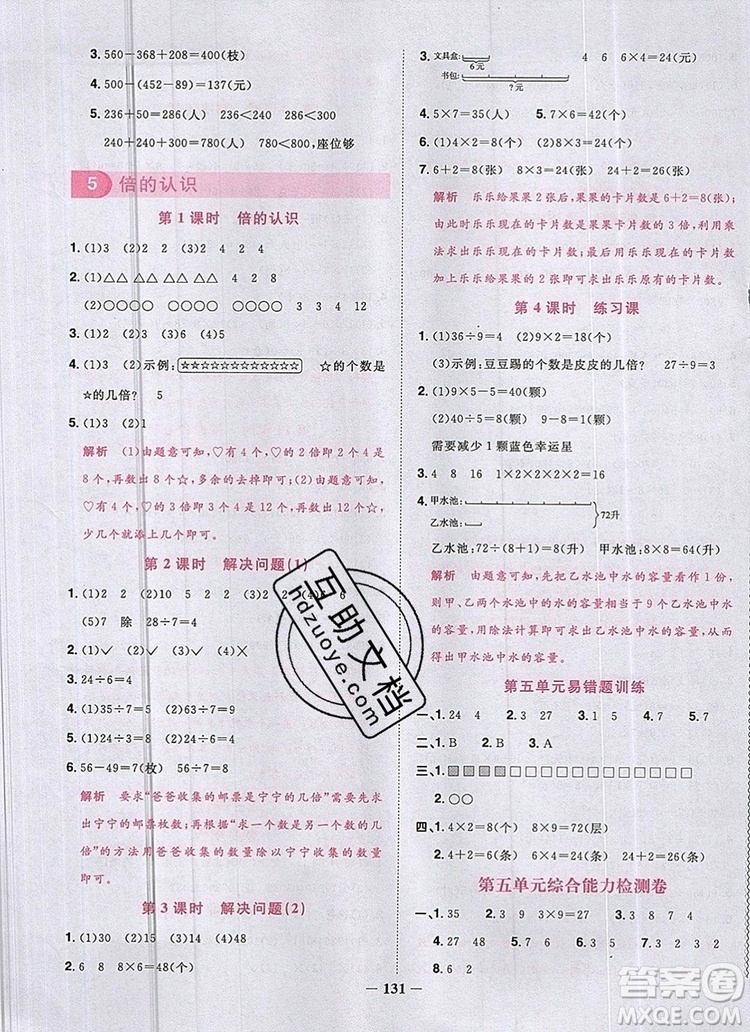 3. 560－368＋208＝400(枝)
4. 500－(452－89)＝137(元)
5. 236＋50＝286(人) 236＜240 286＜800
240＋240＋800＝780(人) 780＜800，座位够
5 倍的认识
第1课时 倍的认识
1. (1)3 (2)2 (3)2 4 2 4
2. (1)△△ △△ △△ △△ 4 2 8
(2)○○○○ ○○○○ ○○○○ 3 3 4 12
3. (1)2 (2)3 (3)2 (4)6 (4)5
4. (1)3 (2)示例：☆☆☆☆☆☆☆☆☆☆☆☆ ☆的个数是
☆的几倍? 5
5. (1)3 (2)1
解析 (1)由题意可知，♡有4个，♡的个数的2个4是
8个，再数出8个☆，多余的去掉即可；(2)由题意可知，
♡有4个，♡的3倍即为3个4是12个，再数出12个☆，
少几个就添上几个即可。
第2课时 解决问题(1)
1. (1)2 (2)10 5 2 2 (3)2 2
(5)7 除 28÷7＝4
2. (1)✓ (2)✓ (3)✓
3. 24÷6＝4
4. (1)35÷7＝5 (2)63÷7＝9
5. (1)24÷3＝8 (2)24÷8＝3
6. 56－49＝7(枚) 56÷7＝8
解析 要求“爸爸收集的邮票是宁宁的几倍”需要先求
出宁宁的邮票枚数；再根据“求一个数是另一个数的几
倍”的方法用爸爸收集的数量除以宁宁收集的数量
即可。
第3课时 解决问题(2)
1. (1)30 (2)15 (3)14 (4)48
2. 6 8 8×6＝48(个)
3. 文具盒： 6元 4 6 6×4＝24(元)
书包： ?元
4. 5×7＝35(人) 5. 7×6＝42(个)
6. (1)4×2＝8(个) (2)8×3＝24(个)
7. 6＋2＝8(张) 8×3＝24(张) 24－2＝22(张)
解析 乐乐给果果2张后，果果的卡片数是6＋2＝8(张)；
由此时乐乐现在的卡片数是果果现在的3倍，利用乘
法求出乐乐现在的卡片数；最后用乐乐现在的卡片数
加上乐乐给果果的2张即可求出乐乐原有的卡片数。
第4课时 练习课
1. (1)36÷9＝4 (2)9×2＝18(个)
(3)示例：豆豆踢的个数是皮皮的几倍? 27÷9＝3
2. (1)9×5－5＝40(颗)
(2)40÷5＝8(颗) 9－8＝1(颗)
需要减少1颗蓝色幸运星
3. 4 8 16 1×2×2×2×2＝16
4. 甲水池：
乙水池： 72升
乙水池：72÷(8＋1)＝8(升) 甲水池：8×8＝64(升)
解析 由题意可知，若把乙水池中水的容量看作1份，
则甲、乙两个水池中水的容量相当于9个乙水池中水
的容量，先用除法计算即可求出乙水池中水的容量，再
求出甲水池中水的容量即可。
第五单元易错题训练
一、1. 24 4 2. 3 27 3. 1 5 4. 7 5
二、1. B 2. B 3. A
三、1. ▨▨▨▨□□□□□□□□□□□□
2. ○○
四、1. 4×2＝8(个) 8×9＝72(层)
2. 4＋2＝6(条) 6×4＝24(条) 24－2＝22(条)
第五单元综合能力检测卷
一、1. 35 2. 9 7 3. 9 4. 3 8 7 4
5. 27 48 6. 9 7. 3 2 3 4 2 3 2
8. 6 2
131
互助文档
hdzuoye.com
答案圈
MXQE.COM